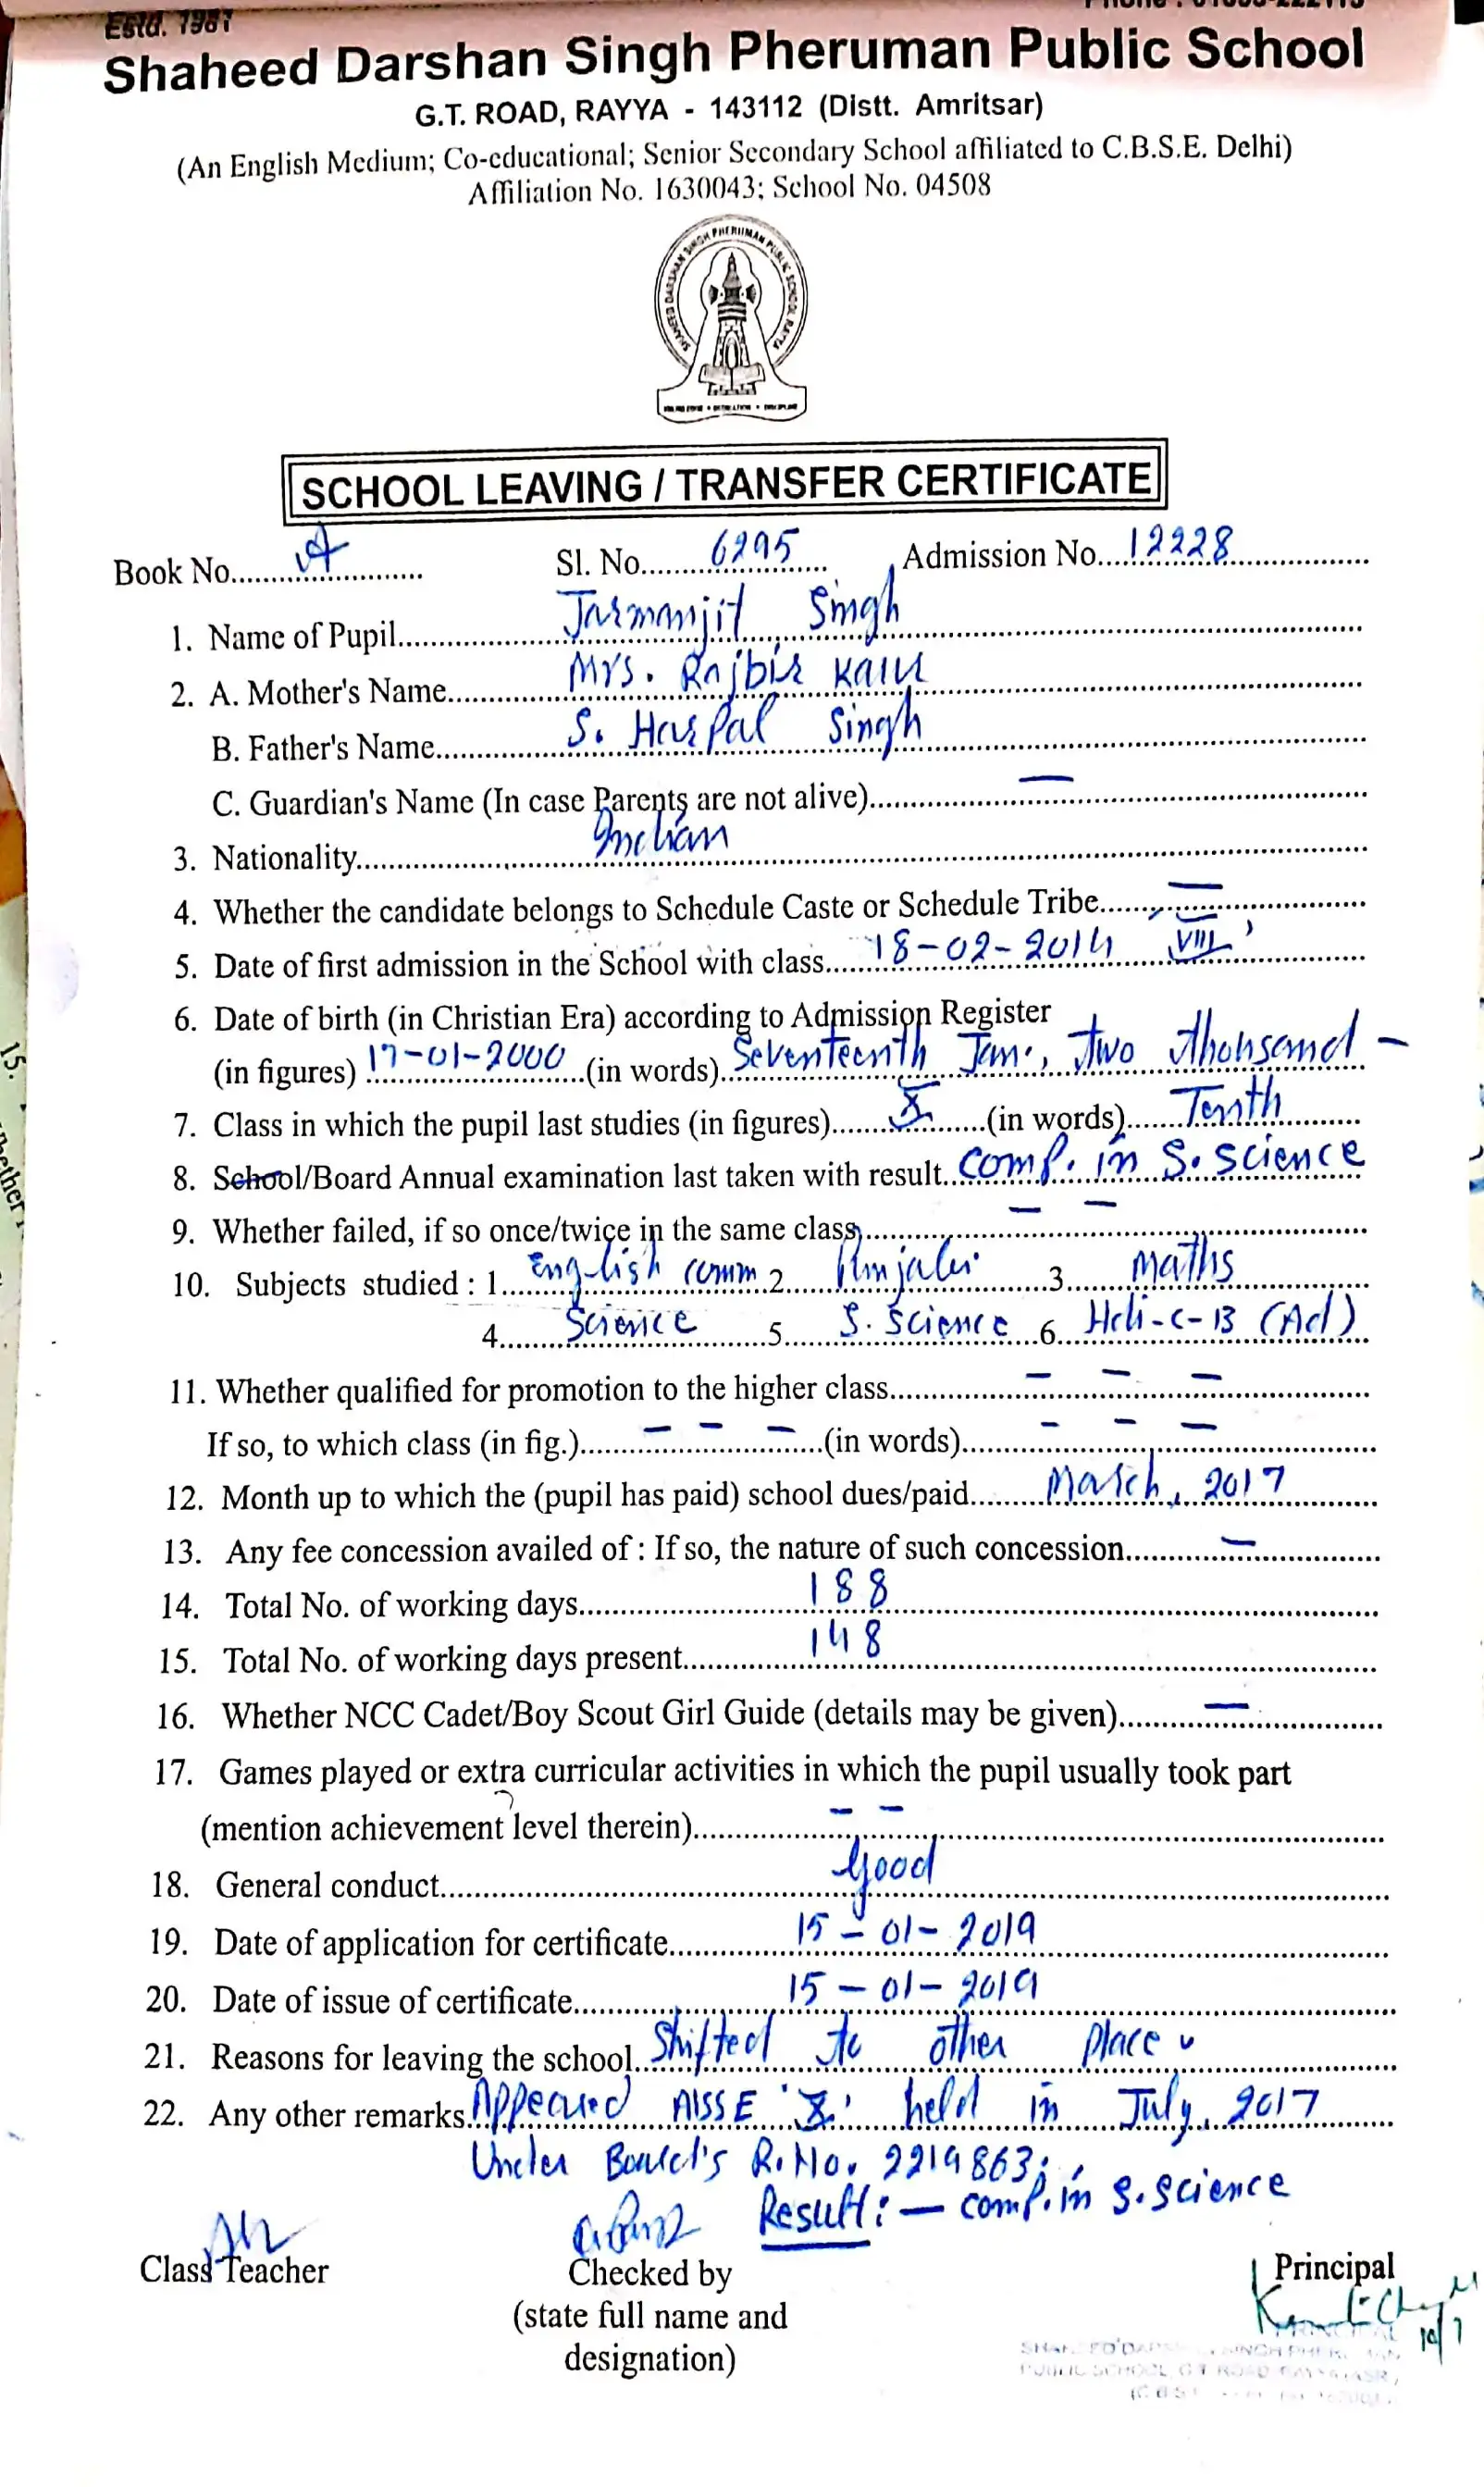 Estd. 1981
Shaheed Darshan Singh Pheruman Public School
G.T. ROAD, RAYYA - 143112 (Distt. Amritsar)
(An English Medium; Co-educational; Senior Secondary School affiliated to C.B.S.E. Delhi)
Affiliation No. 1630043; School No. 04508
SHAHEED DARSHAN SINGH PHERUMAN PUBLIC SCHOOL RAYYA
SCHOOL LEAVING / TRANSFER CERTIFICATE
Book No. A Sl. No. 6295 Admission No. 12228
1. Name of Pupil Jarmanjit Singh
2. A. Mother's Name Mrs. Rajbir Kaur
B. Father's Name S. Harpal Singh
C. Guardian's Name (In case Parents are not alive) —
3. Nationality Indian
4. Whether the candidate belongs to Schedule Caste or Schedule Tribe —
5. Date of first admission in the School with class 18-02-2014 VIII
6. Date of birth (in Christian Era) according to Admission Register
(in figures) 17-01-2000 (in words) Seventeenth Jan., Two thousand -
7. Class in which the pupil last studies (in figures) X (in words) Tenth
8. School/Board Annual examination last taken with result Comp. in S. Science
9. Whether failed, if so once/twice in the same class — —
10. Subjects studied : 1 English comm 2 Punjabi 3 Maths
4 Science 5 S. Science 6 (Ad)
11. Whether qualified for promotion to the higher class — — —
If so, to which class (in fig.) — — — (in words) — — —
12. Month up to which the (pupil has paid) school dues/paid March, 2017
13. Any fee concession availed of : If so, the nature of such concession —
14. Total No. of working days 188
15. Total No. of working days present 148
16. Whether NCC Cadet/Boy Scout Girl Guide (details may be given) —
17. Games played or extra curricular activities in which the pupil usually took part
(mention achievement level therein) — —
18. General conduct Good
19. Date of application for certificate 15-01-2019
20. Date of issue of certificate 15-01-2019
21. Reasons for leaving the school Shifted to other place
22. Any other remarks Appeared AISSE 'X' held in July, 2017
Under Board's R.No. 2219863;
Result:— comp. in S. Science
Class Teacher Checked by Principal
(state full name and
designation)